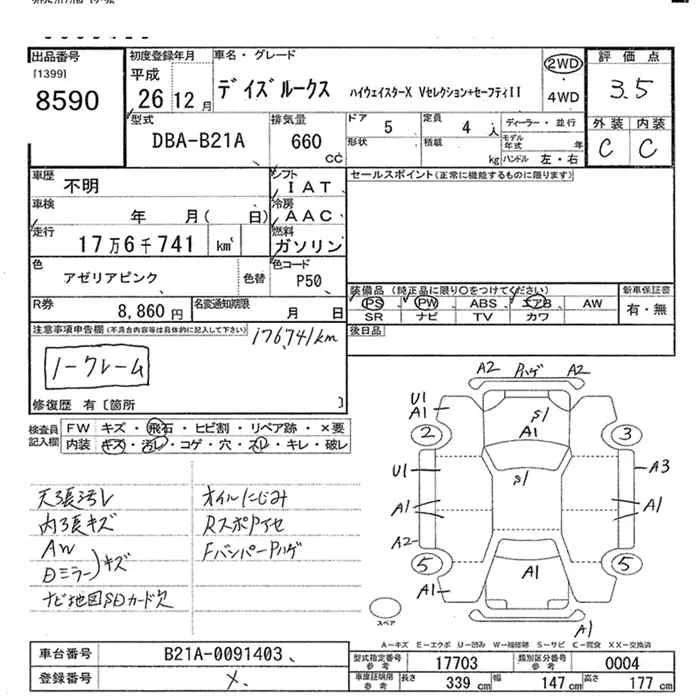 出品番号
[1399]
8590
初度登録年月
平成
26 12 月
車名・グレード
デイズルークス ハイウェイスターX Vセレクション+セーフティII
2WD
4WD
評価点
3.5
外装 内装
C C
型式
DBA-B21A
排気量
660
CC
ドア 5
定員 4 人
形状
積載 kg
ディーラー・並行
モデル年式 年
ハンドル 左・右
車歴
不明
シフト
IAT
車検
年 月( 日)
冷房
AAC
走行
17万6千741 km
燃料
ガソリン
セールスポイント(正常に機能するものに限ります)
色
アゼリアピンク
色替
色コード
P50
装備品(純正品に限り○をつけてください)
PS PW ABS エアB AW
SR ナビ TV カワ
新車保証書
有・無
R券
8,860円
名変通知期限
月 日
後日品
注意事項申告欄(不具合内容等は具体的に記入して下さい)
176,741km
ノークレーム
修復歴 有〔箇所 〕
検査員記入欄
FW キズ・飛石・ヒビ割・リペア跡・×要
内装 キズ・汚レ・コゲ・穴・スレ・キレ・破レ
天張汚レ
内張キズ
AW
Dミラー キズ
ナビ地図SDカード欠
オイルにじみ
Rスポイラ欠
FバンパーPハゲ
A2 Pハゲ A2
U1
A1
S1
A1
2
3
U1
S1
A3
A1
A1
A2
5
5
A1
A1
スペア
A1
A-キズ E-エクボ U-凹み W-補修跡 S-サビ C-腐食 XX-交換済
車台番号
B21A-0091403
登録番号
×
型式指定番号
参考
17703
類別区分番号
参考
0004
車検証積載
参考
長さ 339 cm
幅 147 cm
高さ 177 cm